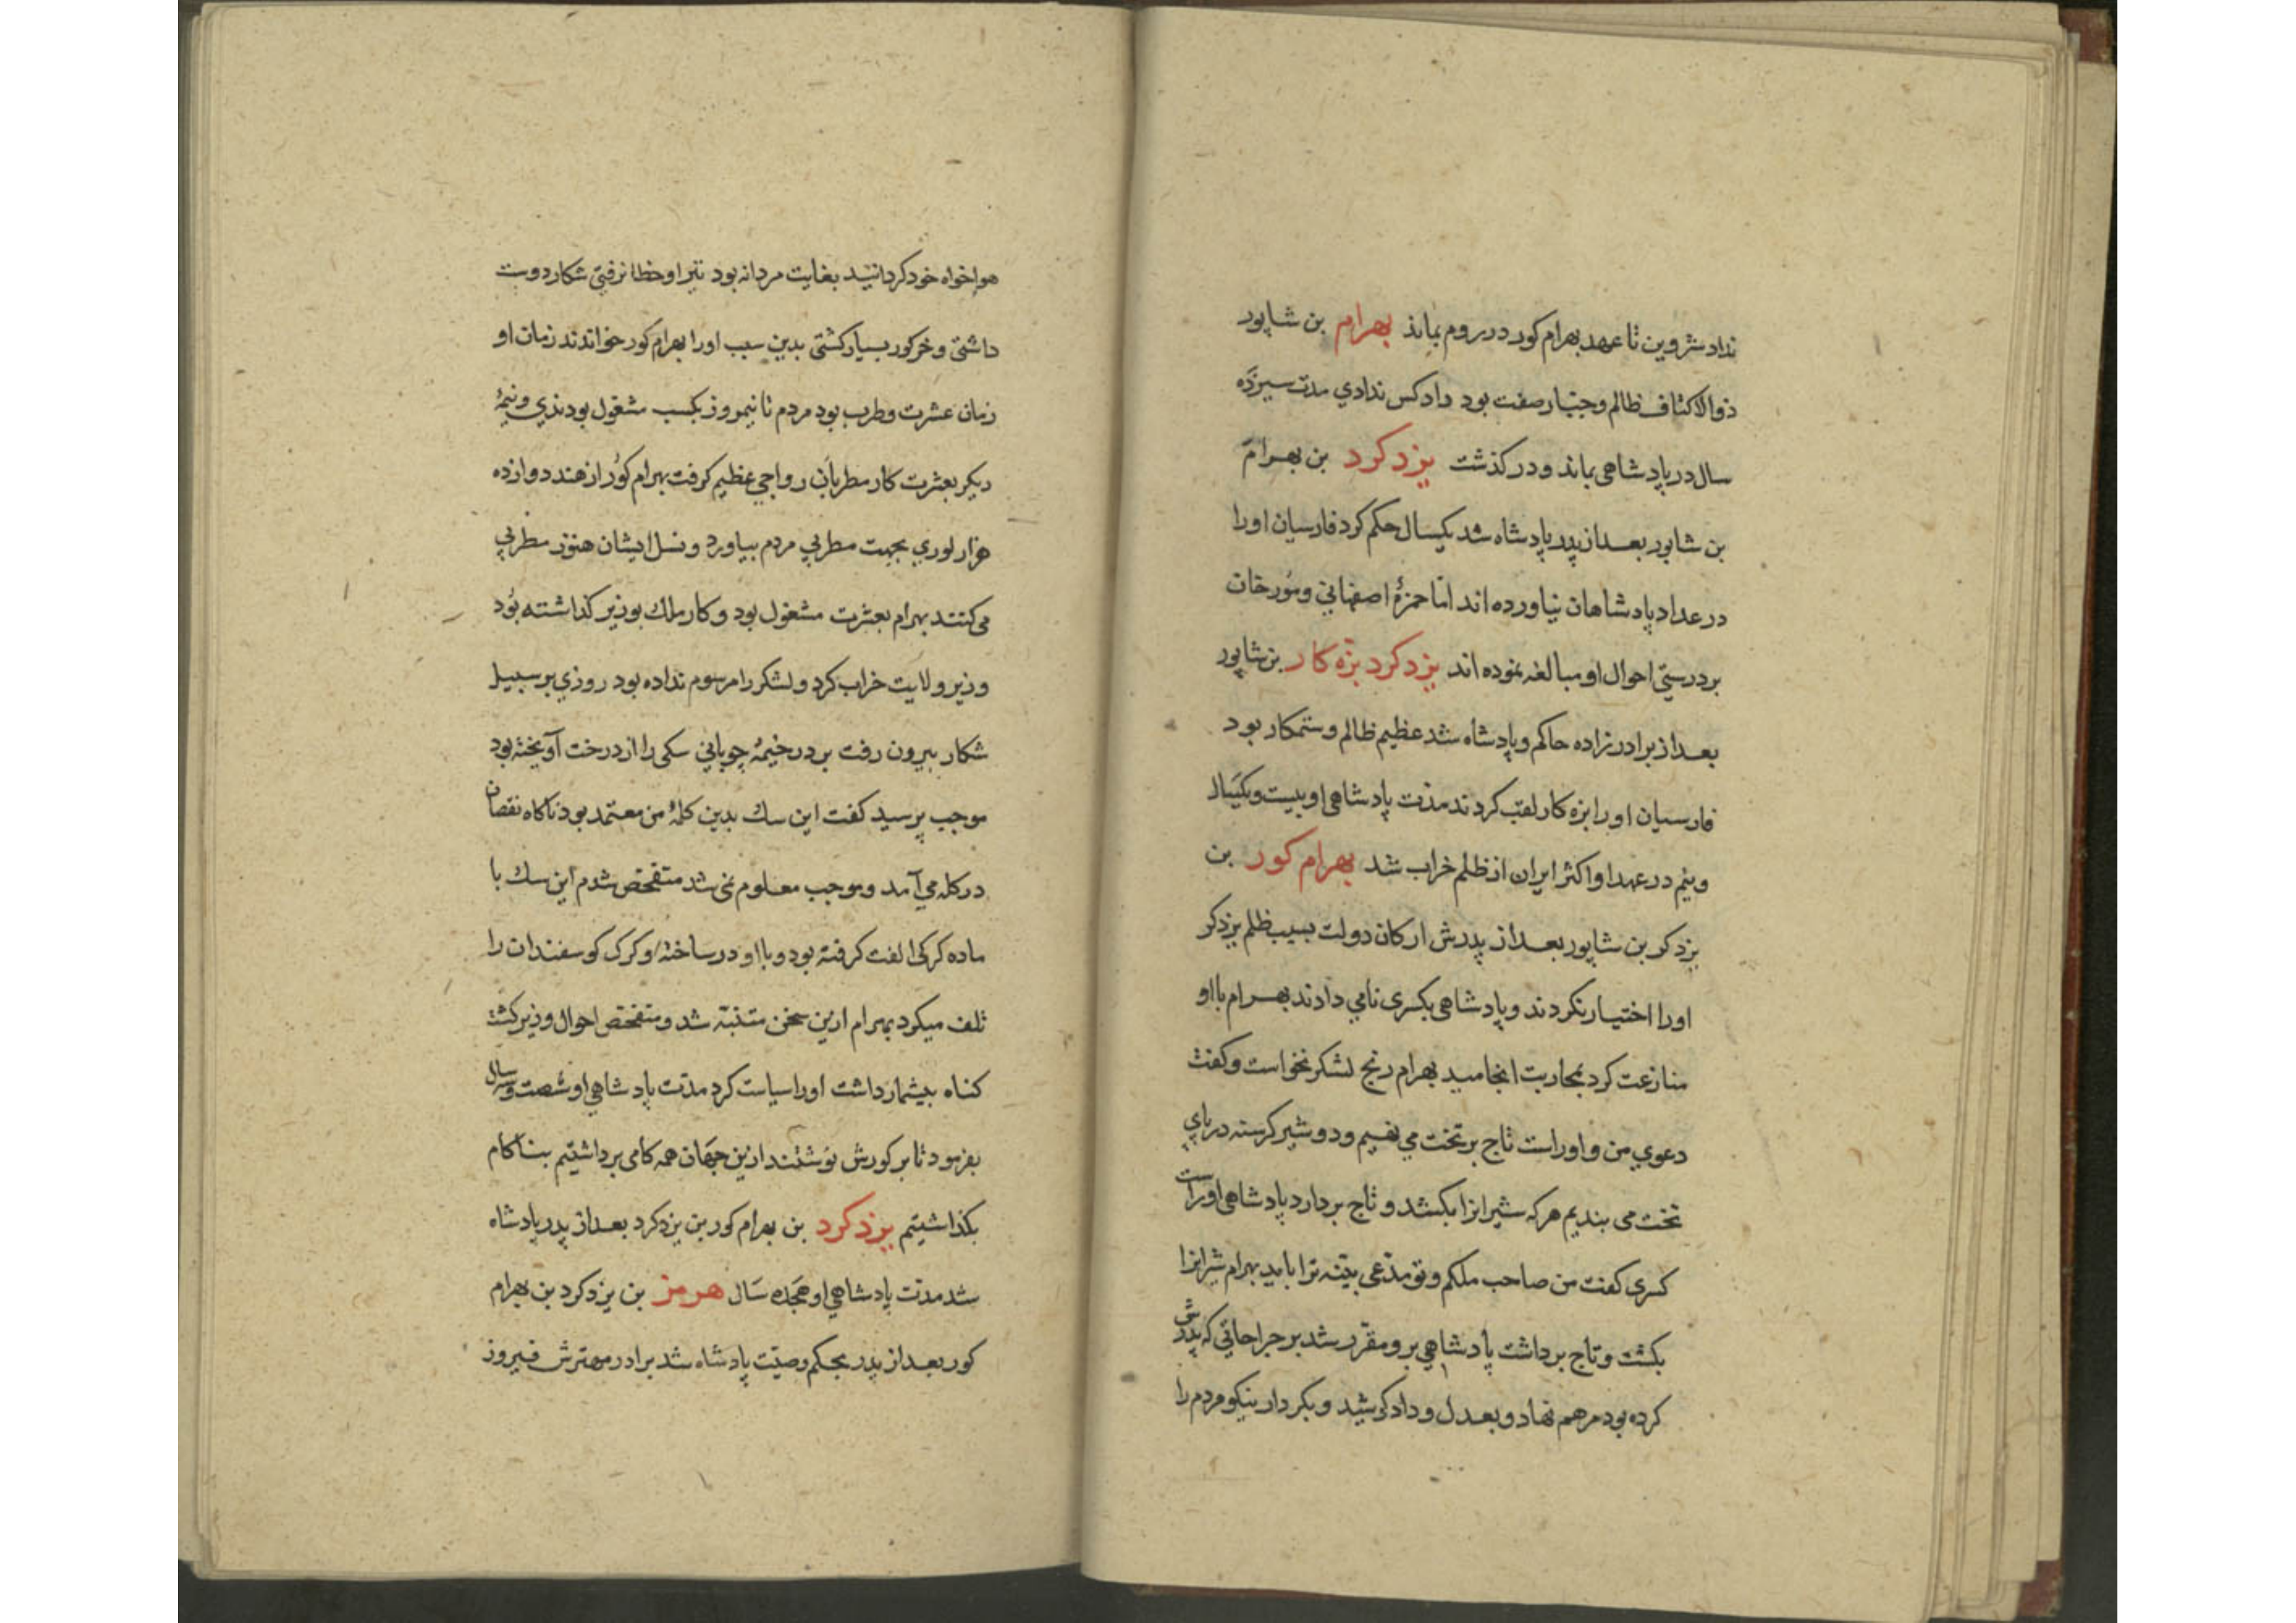 نداد شروین تا عهد بهرام کور در روم بماند بهرام بن شاپور
ذوالاکتاف ظالم و جبّار صفت بود داد کس ندادي مدت سیزده
سال در پادشاهی بماند و درکذشت یزدکرد بن بهرام
بن شاپور بعد از پدر پادشاه شد یکسال حکم کرد فارسیان اورا
در عداد پادشاهان نیاورده اند امّا حمزهٔ اصفهاني و مورخان
بر درستي احوال او مبالغه نموده اند یزدکرد بزه کار بن شاپور
بعد از برادرزاده حاکم و پادشاه شد عظیم ظالم و ستمکار بود
فارسیان اورا بزه کار لقب کردند مدّت پادشاهی او بیست و یکسال
و نیم در عهد او اکثر ایران از ظلم خراب شد بهرام کور بن
یزدکر بن شاپور بعد از پدرش ارکان دولت بسبب ظلم یزدکر
اورا اختیار نکردند و پادشاهی بکسری نامي دادند بهرام با او
منازعت کرد بمحاربت انجامید بهرام رنج لشکر نخواست و کفت
دعوي من و اوراست تاج بر تخت مي نهیم و دو شیر کرسنه در پاي
تخت می بندیم هر که شیرانرا بکشد و تاج بردارد پادشاهی اوراست
کسری کفت من صاحب ملکم و تو مدّعی بیّنه ترا باید بهرام شیرانرا
بکشت و تاج برداشت پادشاهي برو مقرّر شد بر جراحاتي که پدرش
کرده بود مرهم نهاد و بعدل و داد کوشید و بکردار نیکو مردم را
هواخواه خود کردانید بغایت مردانه بود تیر او خطا نرفتي شکار دوست
داشتي و خرکور بسیار کشتي بدین سبب اورا بهرام کور خواندند زمان او
زمان عشرت و طرب بود مردم تا نیمروز بکسب مشغول بودندي و نیمهٔ
دیکر بعشرت کار مطربان رواجي عظیم کرفت بهرام کور از هند دوازده
هزار لوري بجهت مطربي مردم بیاورد و نسل ایشان هنوز مطربي
می کنند بهرام بعشرت مشغول بود و کار ملك بوزیر کذاشته بود
وزیر ولایت خراب کرد و لشکر را مرسوم نداده بود روزي بر سبیل
شکار بیرون رفت بر در خیمهٔ چوپاني سکی را از درخت آویخته بود
موجب پرسید کفت این سك بدین کلهٔ من معتمد بود ناکاه نقصان
در کله مي آمد و موجب معلوم نمی شد متفحّص شدم این سك با
ماده کرکی الفت کرفته بود و با او در ساخته و کرک کوسفندان را
تلف میکرد بهرام ازین سخن متنبّه شد و متفحّص احوال وزیر کشت
کناه بیشمار داشت اورا سیاست کرد مدّت پادشاهي او شصت و سه سال
بفرمود تا بر کورش نوشتند ازین جهان همه کامی برداشتیم بناکام
بکذاشتیم یزدکرد بن بهرام کور بن یزدکرد بعد از پدر پادشاه
شد مدّت پادشاهي او هجده سال هرمز بن یزدکرد بن بهرام
کور بعد از پدر بحکم وصیّت پادشاه شد برادر مهترش فیروز